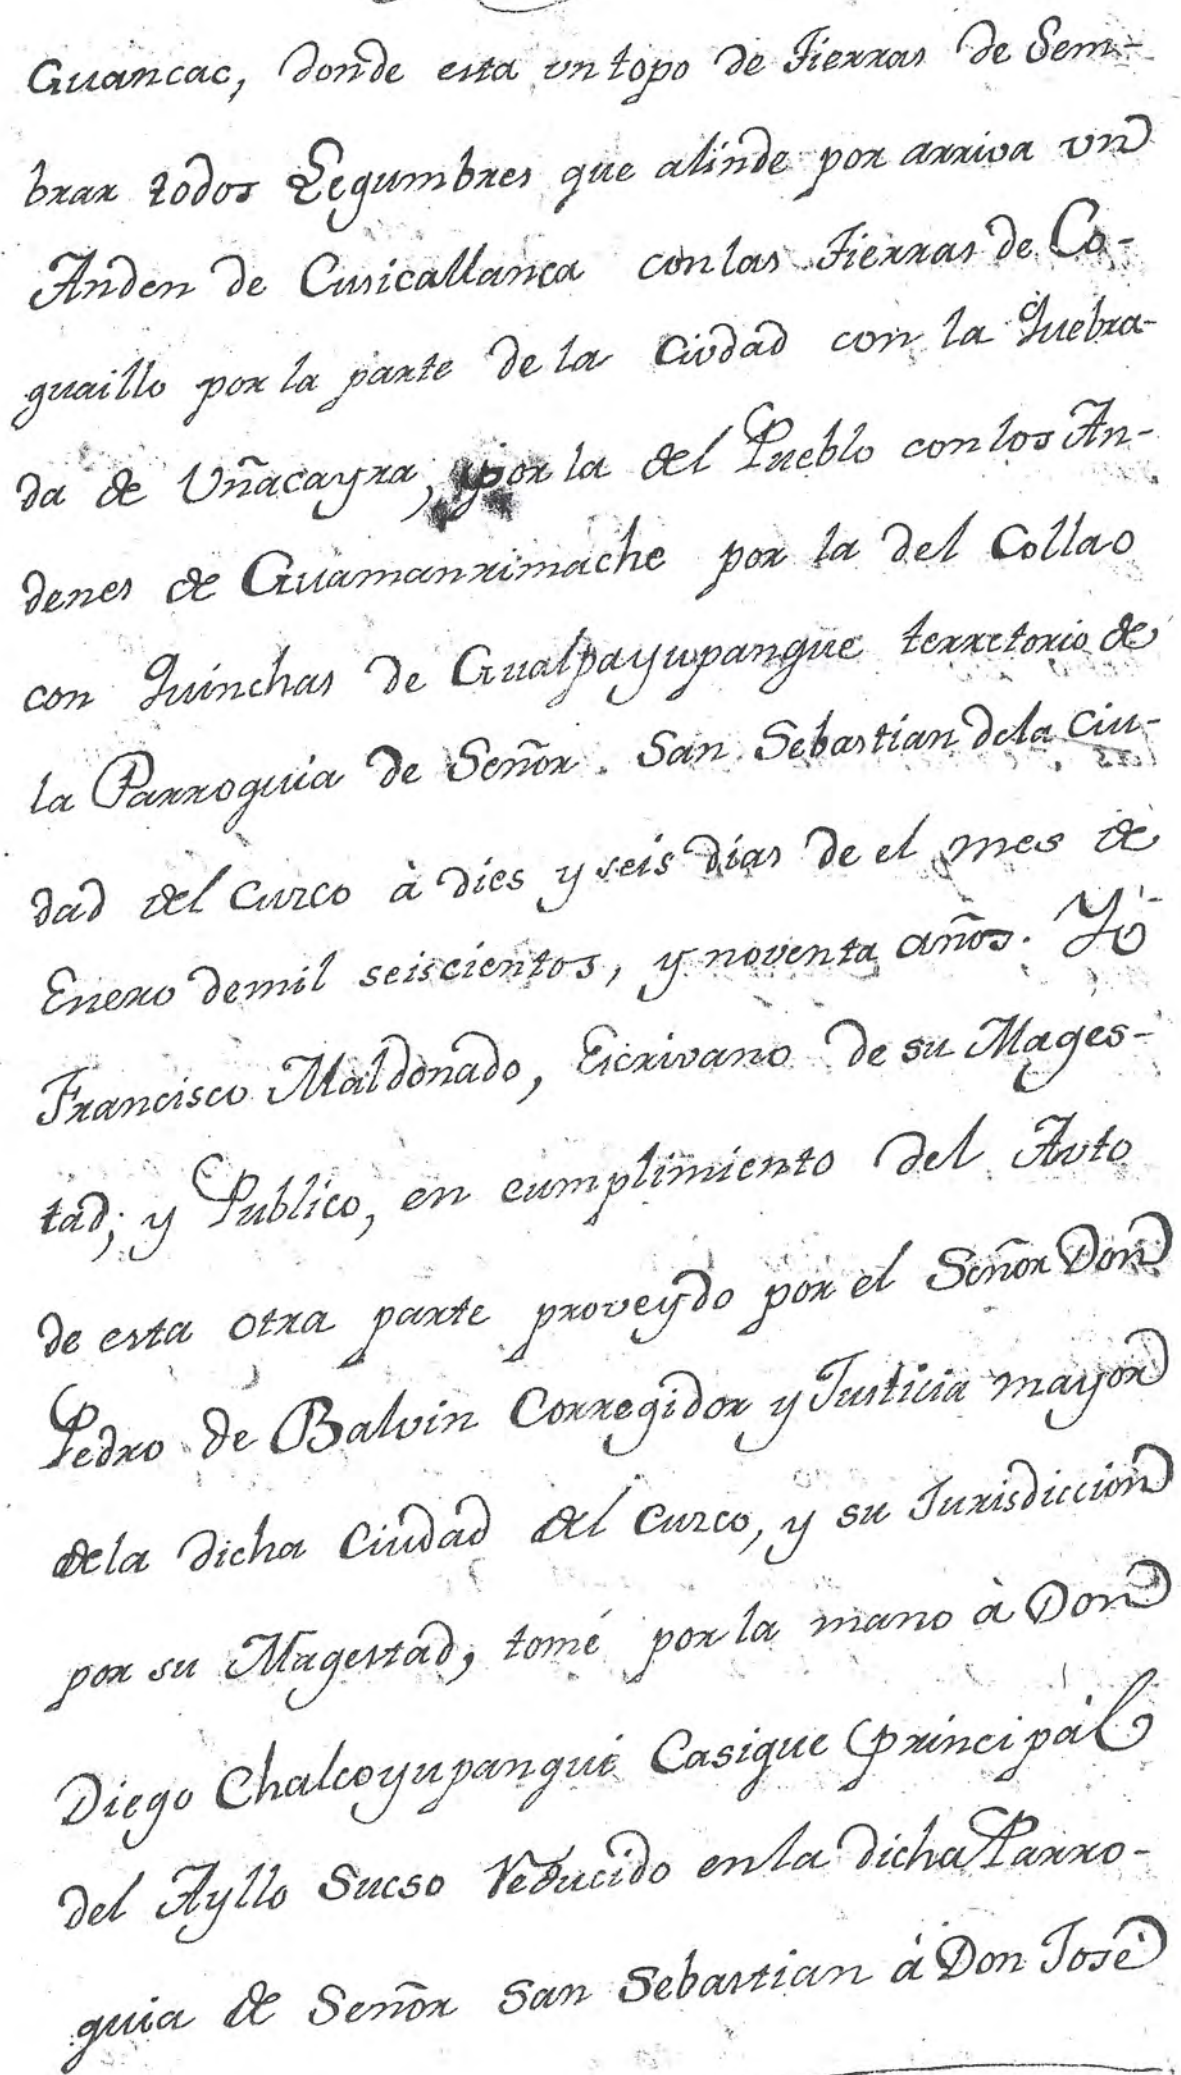 Guancac, donde esta vn topo de Tierras de Sem-
brar todos Legumbres que alinde por arriva vn
Anden de Cusicallanca con las Tierras de Co-
guaillo por la parte de la Ciudad con la Quebra-
da de Vñacayra, y por la del Pueblo con los An-
denes de Guamanrimache por la del Collao
con Quinchas de Gualpayupangue terretorio de
la Parroquia de Señor San Sebastian dela Ciu-
dad del Curco à dies y seis dias de el mes de
Enero demil seiscientos, y noventa años. Yo
Francisco Maldonado, Escrivano de su Mages-
tad; y Publico, en cumplimiento del Auto
de esta otra parte proveydo por el Señor Don
Pedro de Balvin Corregidor y Justicia mayor
dela dicha Ciudad del Curco, y su Jurisdiccion
por su Magestad, tomé por la mano à Don
Diego Chalcoyupangui Casique principal
del Ayllo Sucso Reducido en la dicha Parro-
quia de Señor San Sebastian á Don José